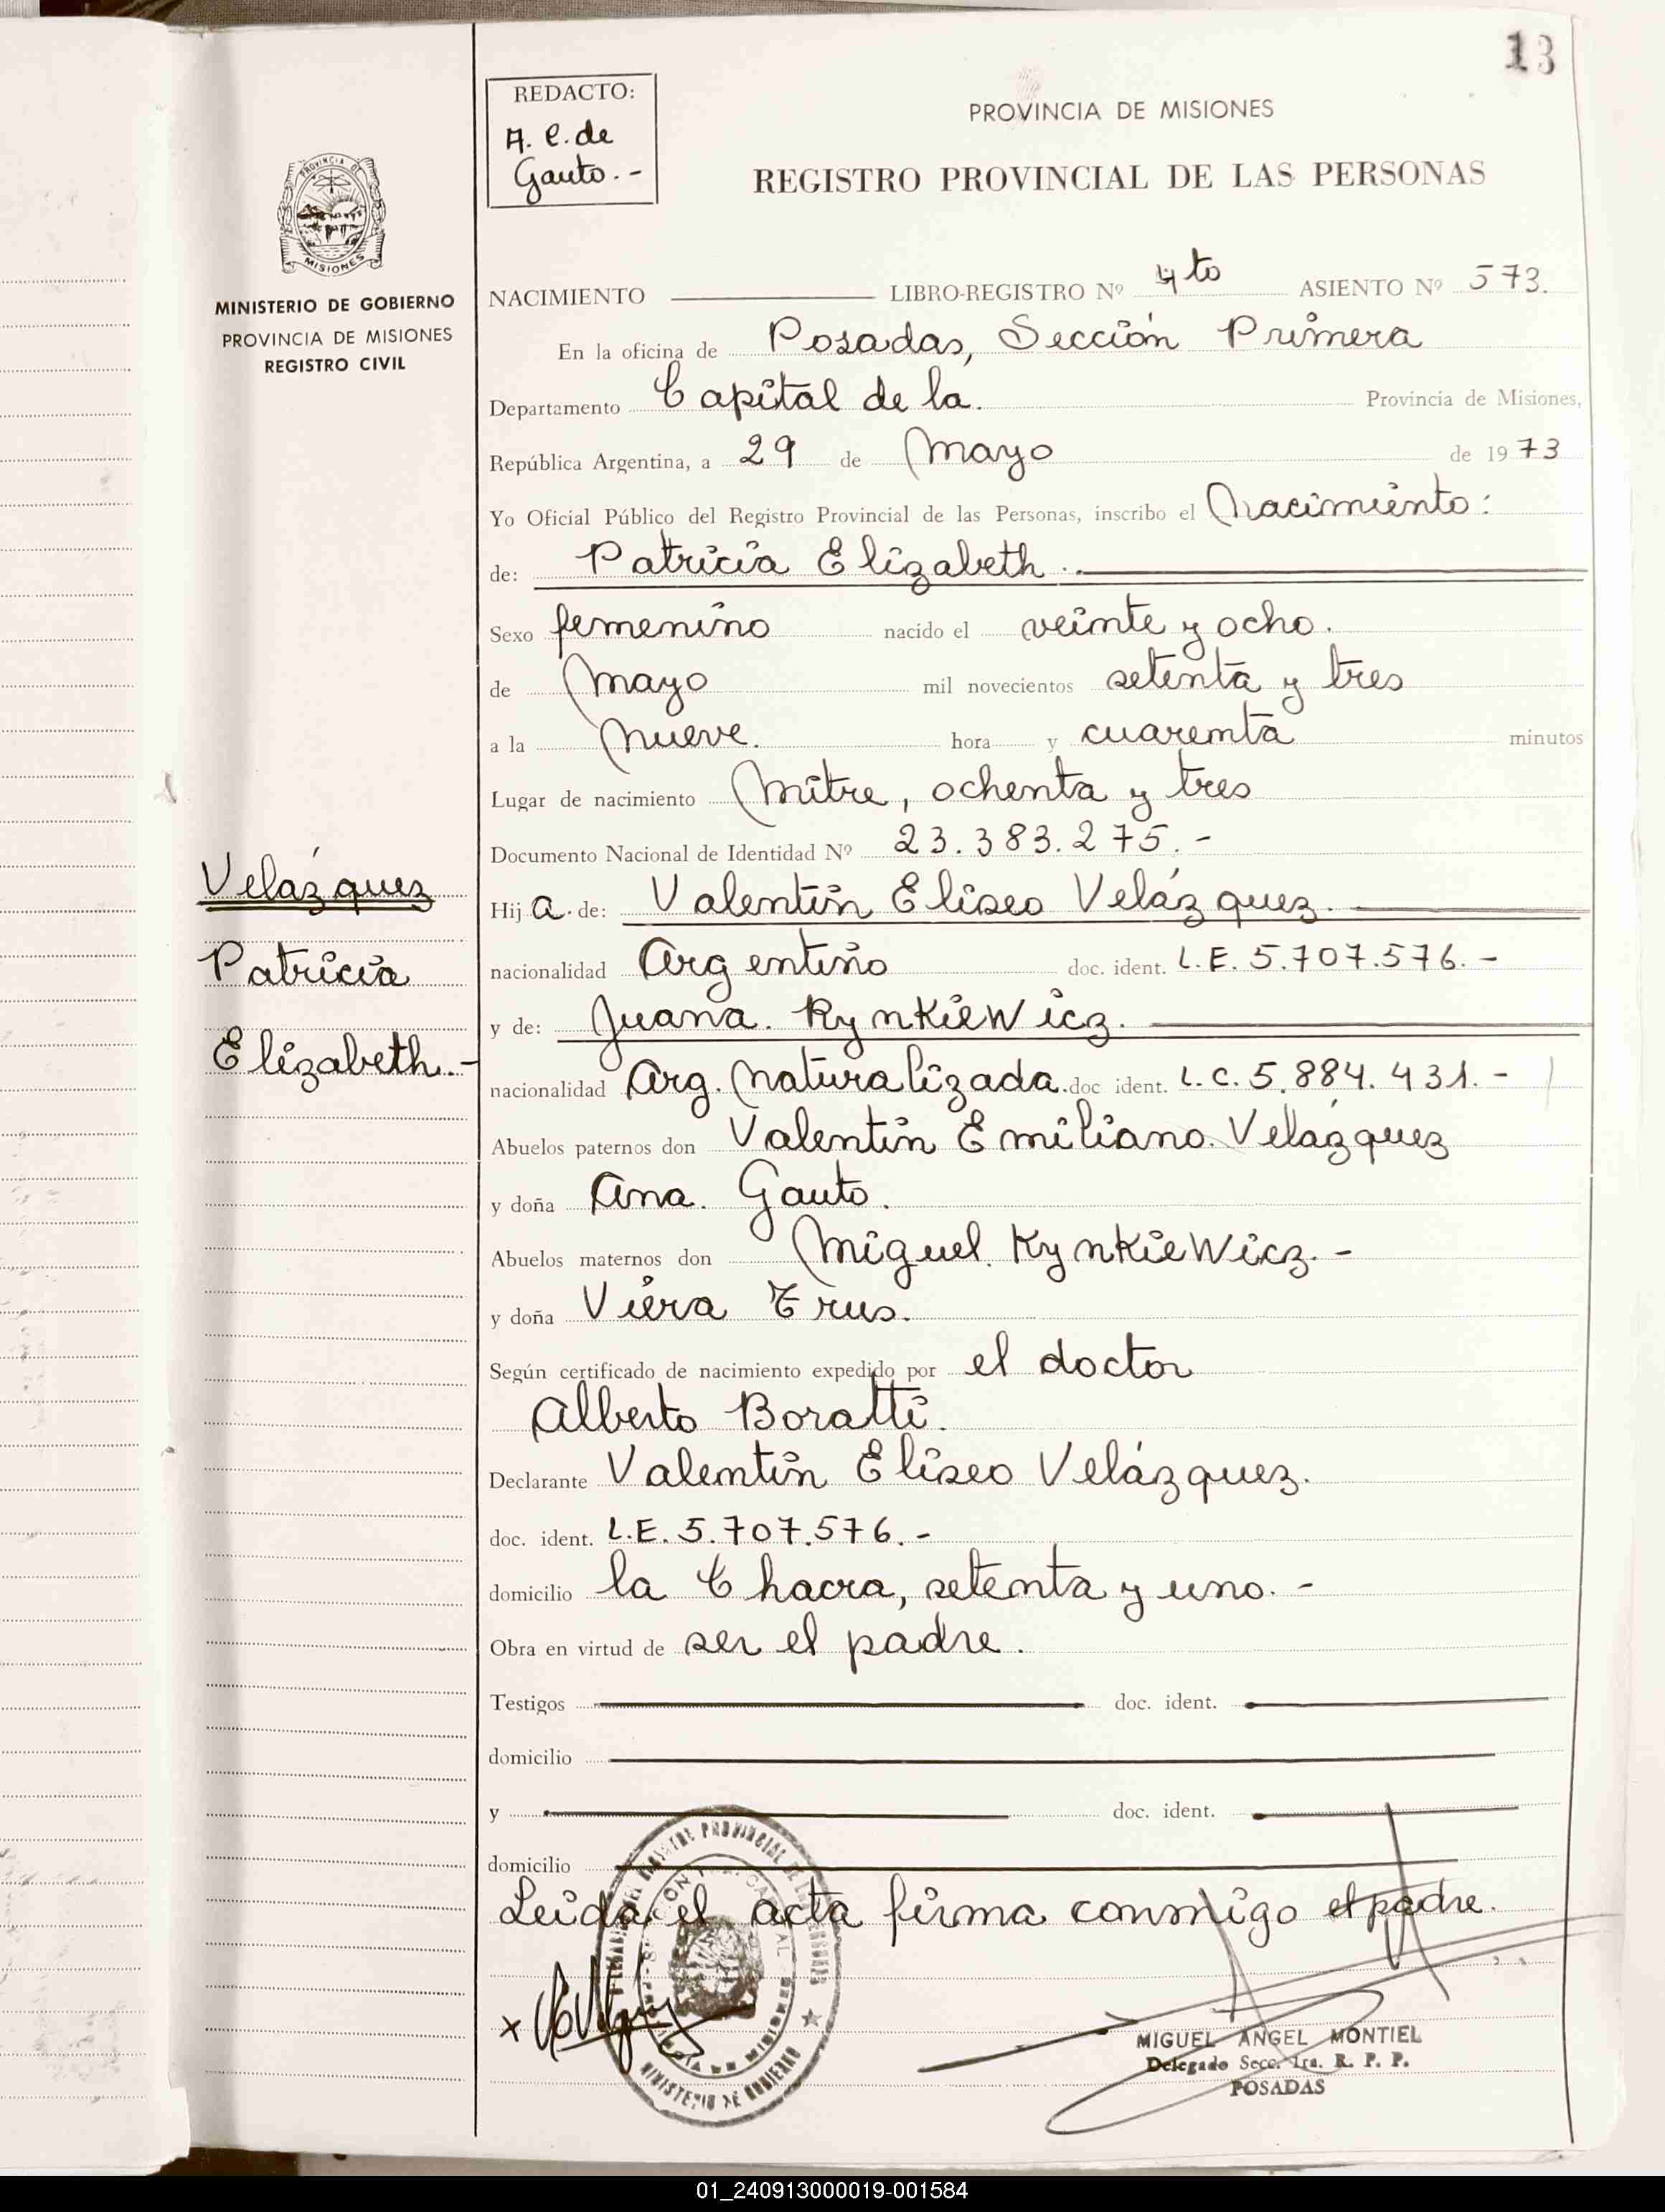 13
REDACTO:
A. C. de
Gauto.-
PROVINCIA DE MISIONES
REGISTRO PROVINCIAL DE LAS PERSONAS
PROVINCIA DE
MISIONES
MINISTERIO DE GOBIERNO
PROVINCIA DE MISIONES
REGISTRO CIVIL
NACIMIENTO LIBRO-REGISTRO Nº 4to ASIENTO Nº 573.
En la oficina de Posadas, Sección Primera
Departamento Capital de la. Provincia de Misiones,
República Argentina, a 29 de Mayo de 1973
Yo Oficial Público del Registro Provincial de las Personas, inscribo el Nacimiento:
de: Patricia Elizabeth.
Sexo femenino nacido el veinte y ocho.
de Mayo mil novecientos setenta y tres
a la Nueve. hora y cuarenta minutos
Lugar de nacimiento Mitre, ochenta y tres
Documento Nacional de Identidad Nº 23.383.275.-
Velázquez
Patricia
Elizabeth.-
Hij a. de: Valentín Eliseo Velázquez.
nacionalidad Argentino doc. ident. L.E. 5.707.576.-
y de: Juana. Rynkiewicz.
nacionalidad Arg. Naturalizada. doc ident. L.C. 5.884.431.-
Abuelos paternos don Valentín Emiliano. Velázquez
y doña Ana. Gauto.
Abuelos maternos don Miguel. Rynkiewicz.-
y doña Viera Trus.
Según certificado de nacimiento expedido por el doctor
Alberto Boratti.
Declarante Valentín Eliseo Velázquez.
doc. ident. L.E. 5.707.576.-
domicilio la Chacra, setenta y uno.-
Obra en virtud de ser el padre.
Testigos doc. ident.
domicilio
y doc. ident.
domicilio
Leida el acta firma conmigo el padre.
MINISTERIO DE GOBIERNO
MIGUEL ANGEL MONTIEL
Delegado Secc. 1ra. R. P. P.
POSADAS
01_240913000019-001584